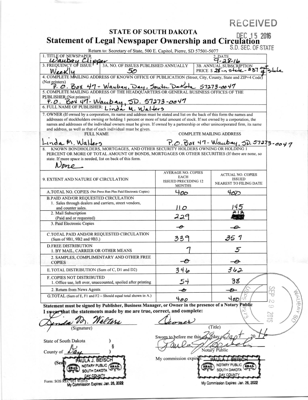 RECEIVED
DEC 15 2016
S.D. SEC. OF STATE
STATE OF SOUTH DAKOTA
Statement of Legal Newspaper Ownership and Circulation
Return to: Secretary of State, 500 E. Capitol, Pierre, SD 57501-5077
1. TITLE OF NEWSPAPER
Waubay Clipper
9-28-16
3. FREQUENCY OF ISSUE
Weekly
3A. NO. OF ISSUES PUBLISHED ANNUALLY
50
3B. ANNUAL SUBSCRIPTION
4. COMPLETE MAILING ADDRESS OF KNOWN OFFICE OF PUBLICATION (Street, City, County, State and ZIP+4 Code)
(Not printers)
P.O. Box 47, Waubay, Day, South Dakota 57273-0047
5. COMPLETE MAILING ADDRESS OF THE HEADQUARTERS OR GENERAL BUSINESS OFFICES OF THE
PUBLISHER (Not printer)
P.O. Box 47 - Waubay, SD. 57273-0047
6. FULL NAME OF PUBLISHER: Linda M. Walters
7. OWNER (If owned by a corporation, its name and address must be stated and list on the back of this form the names and
addresses of stockholders owning or holding 1 percent or more of total amount of stock. If not owned by a corporation, the
names and addresses of the individual owners must be given. If owned by a partnership or other unincorporated firm, its name
and address, as well as that of each individual must be given.
FULL NAME
COMPLETE MAILING ADDRESS
Linda M. Walters
P.O. Box 47 - Waubay, SD. 57273-0047
8. KNOWN BONDHOLDERS, MORTGAGES, AND OTHER SECURITY HOLDERS OWNING OR HOLDING 1
PERCENT OR MORE OF TOTAL AMOUNT OF BONDS, MORTGAGES OR OTHER SECURITIES (If there are none, so
state. If more space is needed, list on back of this form.
None
9. EXTENT AND NATURE OF CIRCULATION
AVERAGE NO. COPIES
EACH
ISSUES PRECEDING 12
MONTHS
ACTUAL NO. COPIES
OF
ISSUED
NEAREST TO FILING DATE
A. TOTAL NO. COPIES (Net Press Run Plus Paid Electronic Copies)
400
400
B. PAID AND/OR REQUESTED CIRCULATION
1. Sales through dealers and carriers, street vendors,
and counter sales
110
2. Mail Subscription
(Paid and or requested)
229
3. Paid Electronic Copies
C. TOTAL PAID AND/OR REQUESTED CIRCULATION
(Sum of 9B1, 9B2 and 9B3)
339
357
D. FREE DISTRIBUTION
1. BY MAIL, CARRIER OR OTHER MEANS
7
5
2. SAMPLES, COMPLIMENTARY AND OTHER FREE
COPIES
E. TOTAL DISTRIBUTION (Sum of C, D1 and D2)
346
362
F. COPIES NOT DISTRIBUTED
1. Office use, left over, unaccounted, spoiled after printing
54
38
2. Return from News Agents
G. TOTAL (Sum of E, F1 and F2 - Should equal total shown in A.)
400
400
Statement must be signed by Publisher, Business Manager, or Owner in the presence of a Notary Public
I swear that the statements made by me are true, correct, and complete:
Linda M. Walters
Owner
(Signature)
(Title)
State of South Dakota )
County of Day
Sworn to before me this
Notary Public
My commission expires:
NOTARY PUBLIC
SOUTH DAKOTA
My Commission Expires Jan. 26, 2022
My Commission Expires Jan. 26, 2022